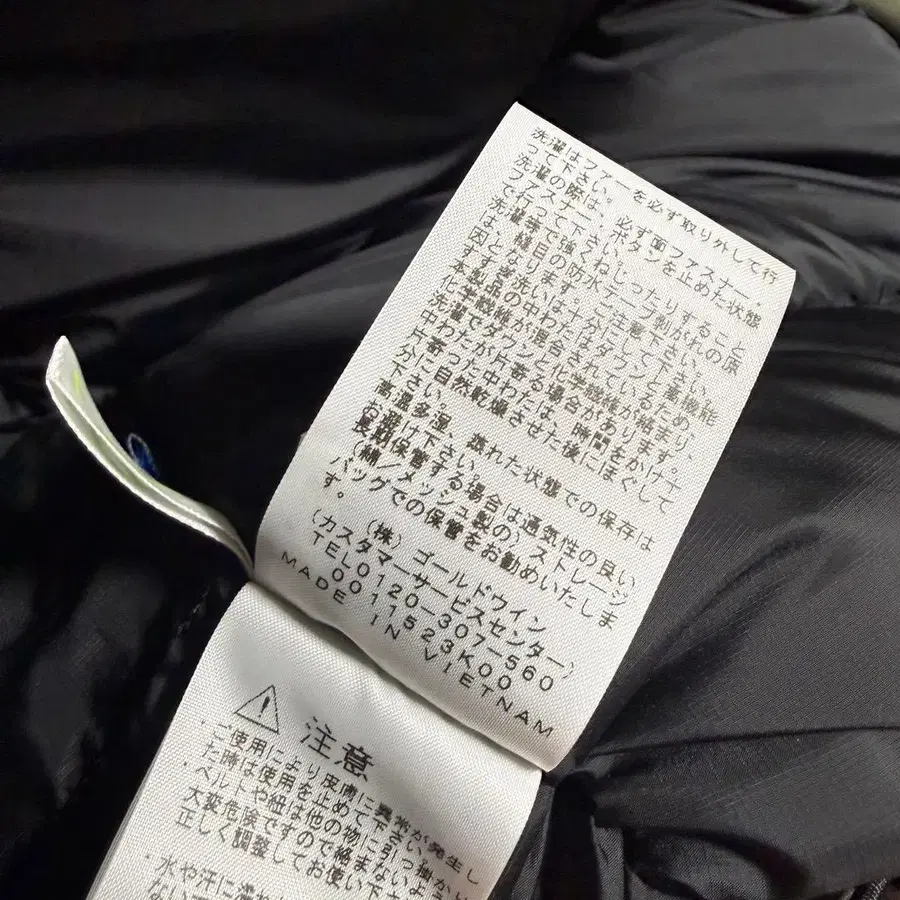 洗濯はファーを必ず取り外して行
って下さい。
洗濯の際は、必ず面ファスナー、
ファスナー、ボタンを止めた状態
で行って下さい。
洗濯等で強くねじったりすること
は、縫目の防水テープ剥がれの原
因となります。ご注意下さい。
すすぎ洗いは十分にして下さい。
本製品の中わたはダウンと蓄機能
化学繊維が混合されているため、
洗濯でダウンと化学繊維が絡まり、
中わたが片寄る場合があります。
片寄った中わたは、時間をかけて十
分に自然乾燥させた後にほぐして
下さい。
高温多湿、蒸れた状態での保存は
お避け下さい。
長期保管する場合は通気性の良い
(綿/メッシュ製の)ストレージ
バッグでの保管をお勧めいたしま
す。
(株)ゴールドウイン
(カスタマーサービスセンター)
TEL0120-307-560
0011523K00
MADE IN VIETNAM
注意
・ご使用により皮膚に異常が発生し
た時は使用を止めて下さい。
・ベルトや紐は他の物に引っ掛かり
大変危険ですので絡まないよ
正しく調整してお使い下さ
・水や汗に濡れ
ない